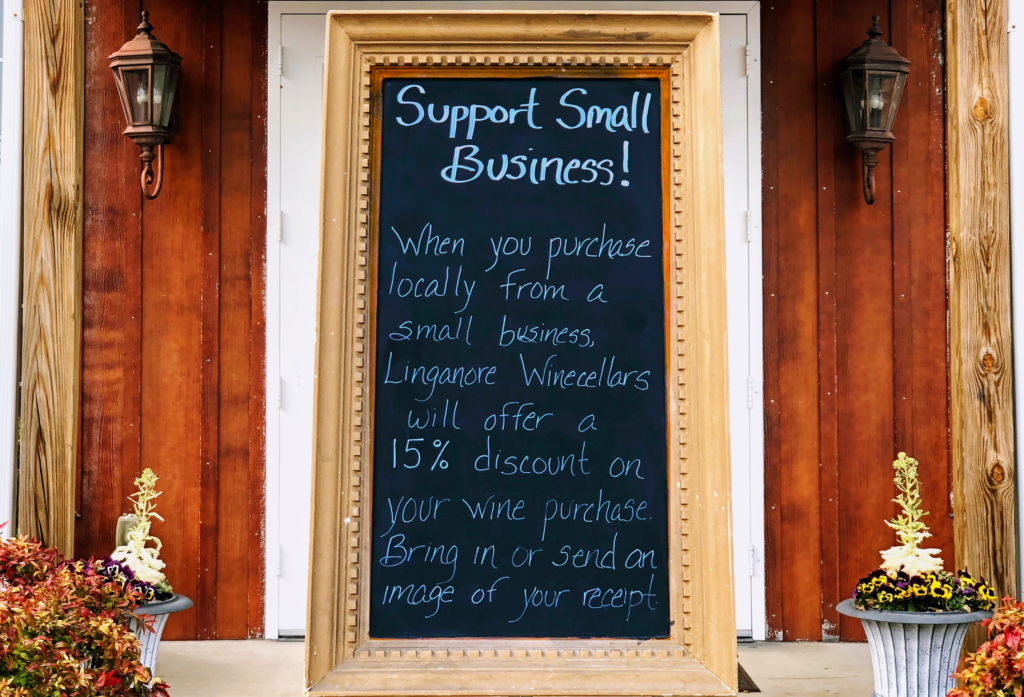 Support Small
Business!
When you purchase
locally from a
small business,
Linganore Winecellars
will offer a
15% discount on
your wine purchase.
Bring in or send an
image of your receipt.